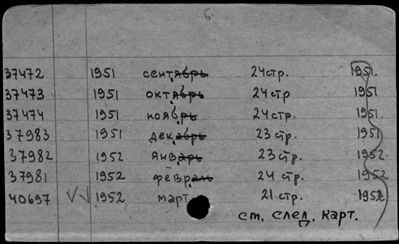 6.
37472 1951 сентябрь 24 стр. 1951.
37473 1951 октябрь 24 стр 1951
37474 1951 ноябрь 24 стр. 1951
37983 1951 декабрь 23 стр. 1951
37982 1952 январь 23 стр. 1952
37981 1952 февраль 24 стр. 1952
40697 VV 1952 март 21 стр. 1952
см. след. карт.